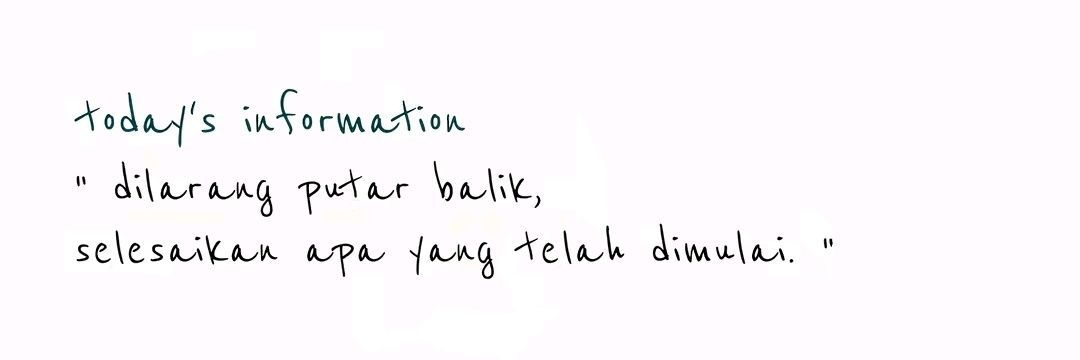 today's information
" dilarang putar balik,
selesaikan apa yang telah dimulai. "